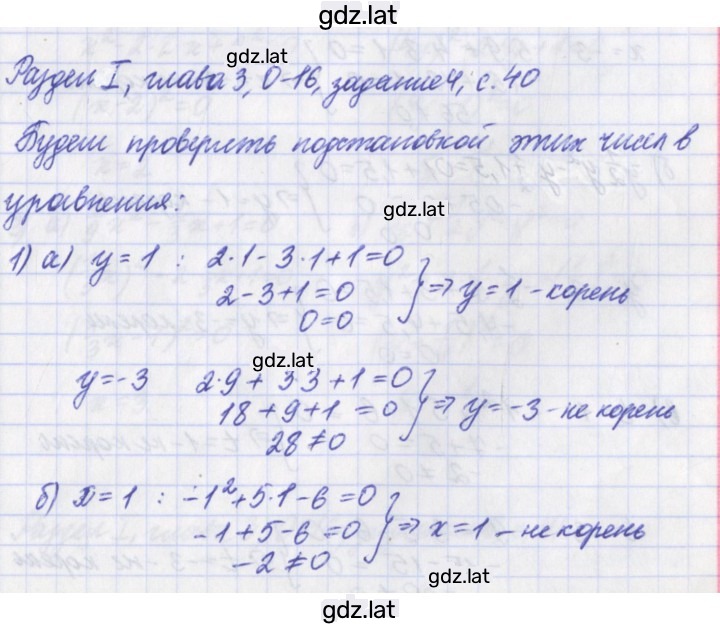 gdz.lat
gdz.lat
Раздел I, глава 3, О-16, задание 4, с. 40
Будем проверять подстановкой этих чисел в
уравнения:
gdz.lat
1) а) y = 1 : 2·1 - 3·1 + 1 = 0
2 - 3 + 1 = 0 ⇒ y = 1 - корень
0 = 0
gdz.lat
y = -3 2·9 + 3·3 + 1 = 0
18 + 9 + 1 = 0 ⇒ y = -3 - не корень
28 ≠ 0
б) x = 1 : -1² + 5·1 - 6 = 0
-1 + 5 - 6 = 0 ⇒ x = 1 - не корень
-2 ≠ 0
gdz.lat
gdz.lat